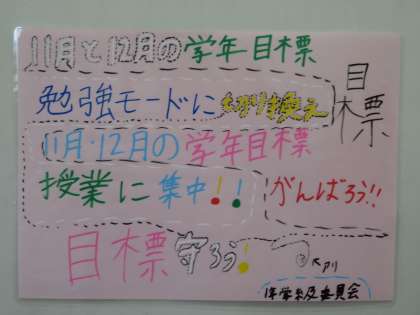 11月と12月の学年目標
目標
勉強モードに切り換え
11月・12月の学年目標
授業に集中!!
がんばろう!!
目標守ろう!
大切
1年学級委員会